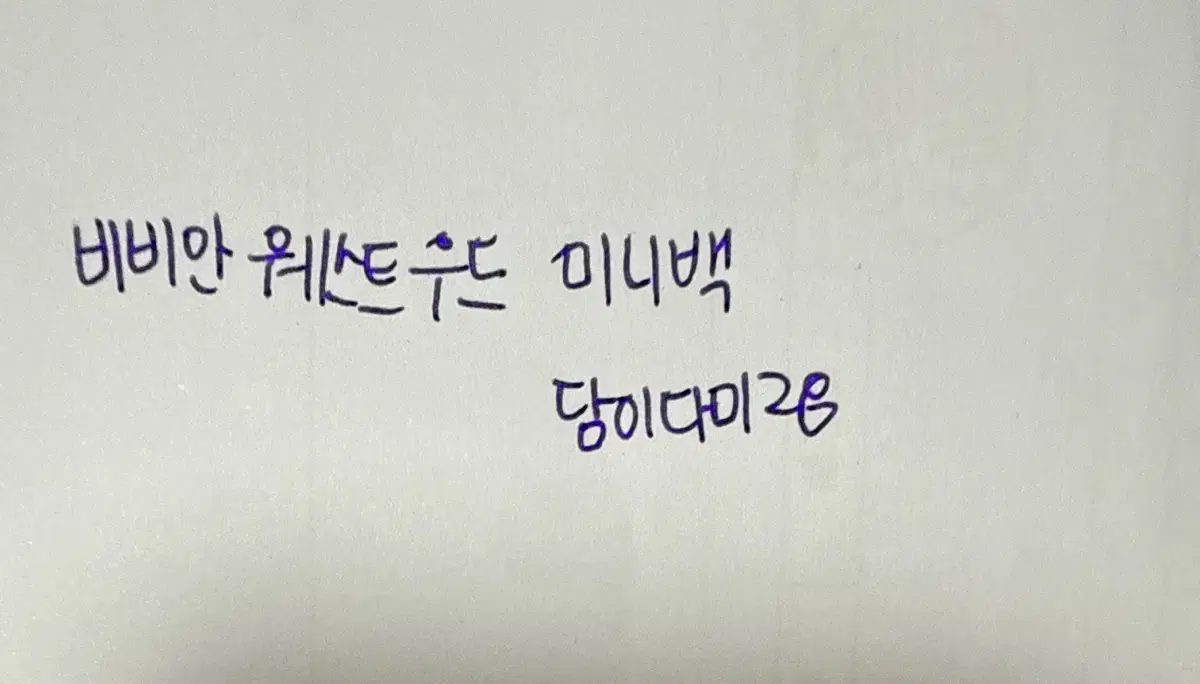 비비안 웨스트우드 미니백
담이다미28